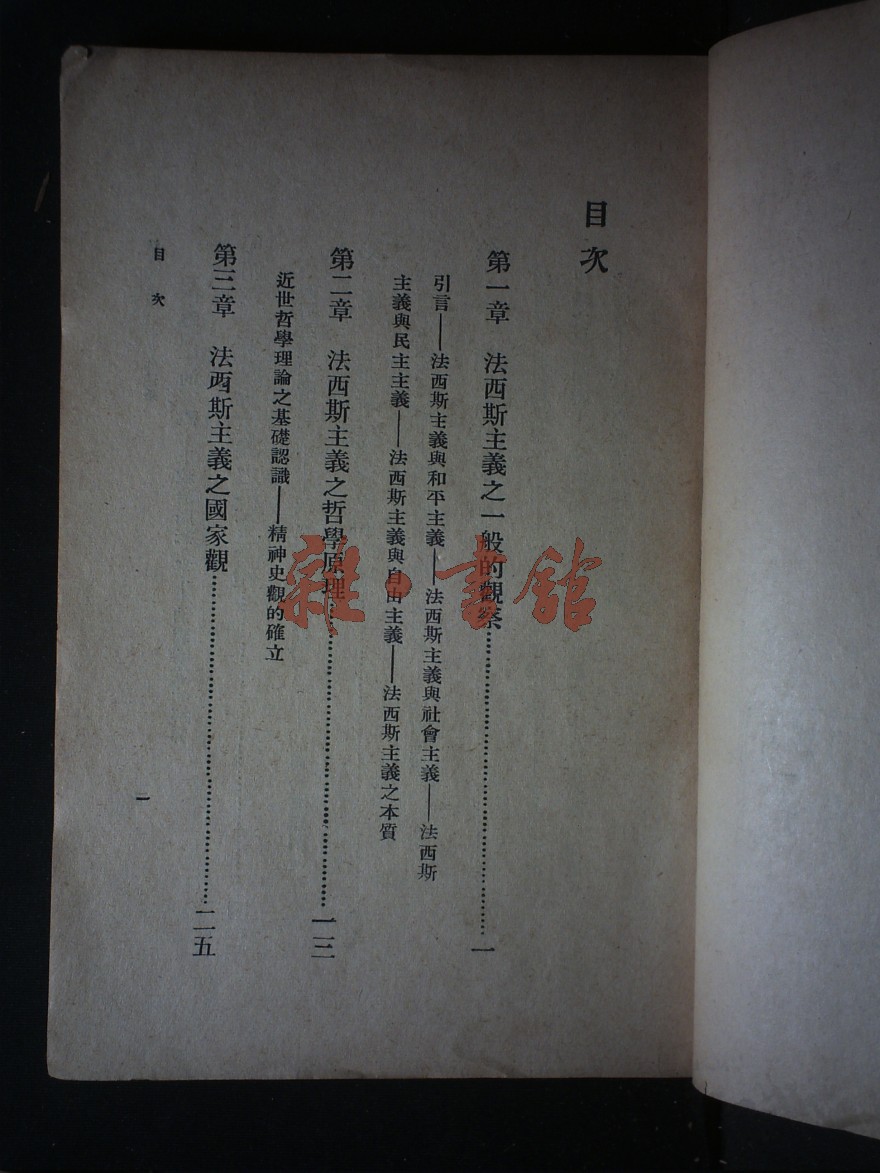 目次
第一章　法西斯主義之一般的觀察……………………一
引言——法西斯主義與和平主義——法西斯主義與社會主義——法西斯
主義與民主主義——法西斯主義與自由主義——法西斯主義之本質
第二章　法西斯主義之哲學原理……………………一三
近世哲學理論之基礎認識——精神史觀的確立
第三章　法西斯主義之國家觀……………………二五
目次
一
雜·書館